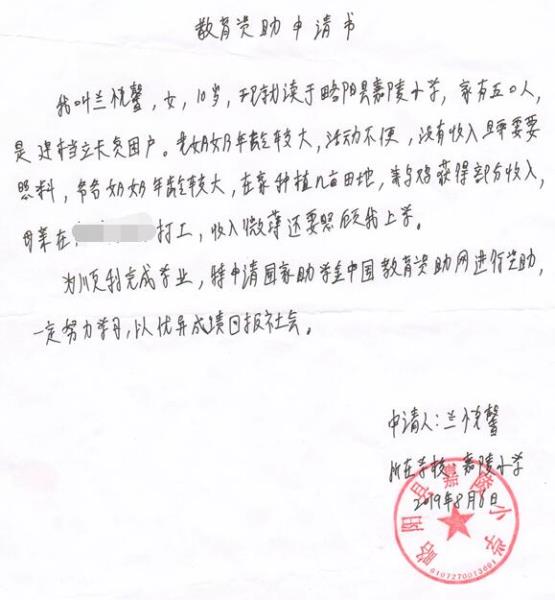 教育资助申请书
我叫兰悦馨，女，10岁，现就读于略阳县嘉陵小学，家有五口人，
是建档立卡贫困户。老奶奶年龄较大，活动不便，没有收入且需要
照料，爷爷奶奶年龄较大，在家种植几亩田地，养鸡获得部分收入，
母亲在 打工，收入微薄还要照顾我上学。
为顺利完成学业，特申请国家助学金中国教育资助网进行资助，
一定努力学习，以优异成绩回报社会。
申请人：兰悦馨
所在学校：嘉陵小学
2019年8月6日
略阳县嘉陵小学